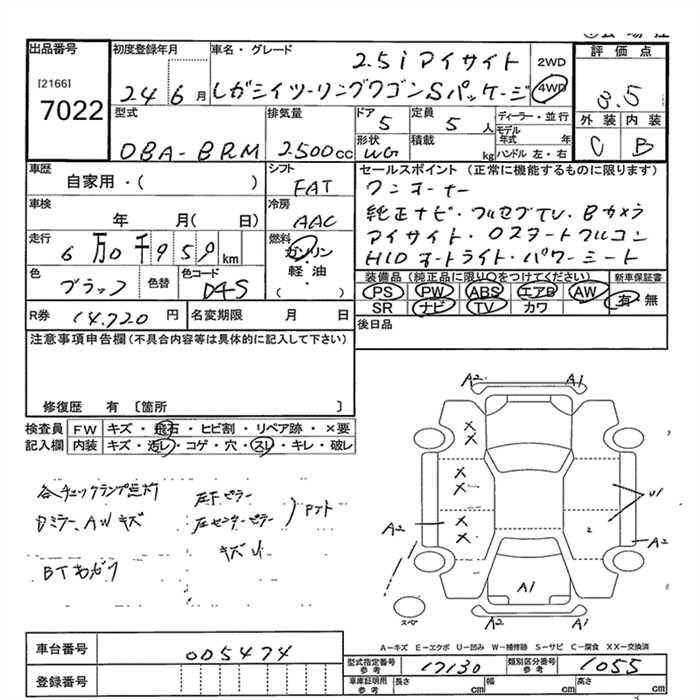 出品番号
[2166]
7022
初度登録年月
24 6月
車名・グレード
2.5i アイサイト
レガシイツーリングワゴンSパッケージ
2WD
4WD
評価点
3.5
外装 内装
C B
型式
DBA-BRM
排気量
2500cc
ドア
5
定員
5人
形状
WG
積載
kg
ディーラー・並行
モデル年式 年
ハンドル 左・右
車歴
自家用・( )
シフト
FAT
車検
年 月( 日)
冷房
AAC
走行
6万0千950km
燃料
ガソリン
・軽・油
( )
色
ブラック
色替
色コード
D4S
セールスポイント (正常に機能するものに限ります)
ワンオーナー
純正ナビ・フルセグTV・Bカメラ
アイサイト・
HIDオートライト・パワーシート
装備品(純正品に限り○をつけてください)
PS PW ABS エアB AW
SR ナビ TV カワ
新車保証書
有・無
R券 14,720円
名変期限 月 日
後日品
注意事項申告欄(不具合内容等は具体的に記入して下さい)
修復歴 有 〔箇所 〕
検査員記入欄
FW キズ・飛石・ヒビ割・リペア跡・×要
内装 キズ・汚レ・コゲ・穴・スレ・キレ・破レ
各チェックランプ点灯
Dミラー、AWキズ
左下ピラー
左センターピラー
キズU
A2 A1
X
X
X
X
X
X
U1
A2
2
A2
A1
スペア
A2 A1
A-キズ E-エクボ U-凹み W-補修跡 S-サビ C-腐食 XX-交換済
車台番号
005474
登録番号
型式指定番号 参考
17130
類別区分番号 参考
1055
車庫証明用 参考
長さ cm 幅 cm 高さ cm